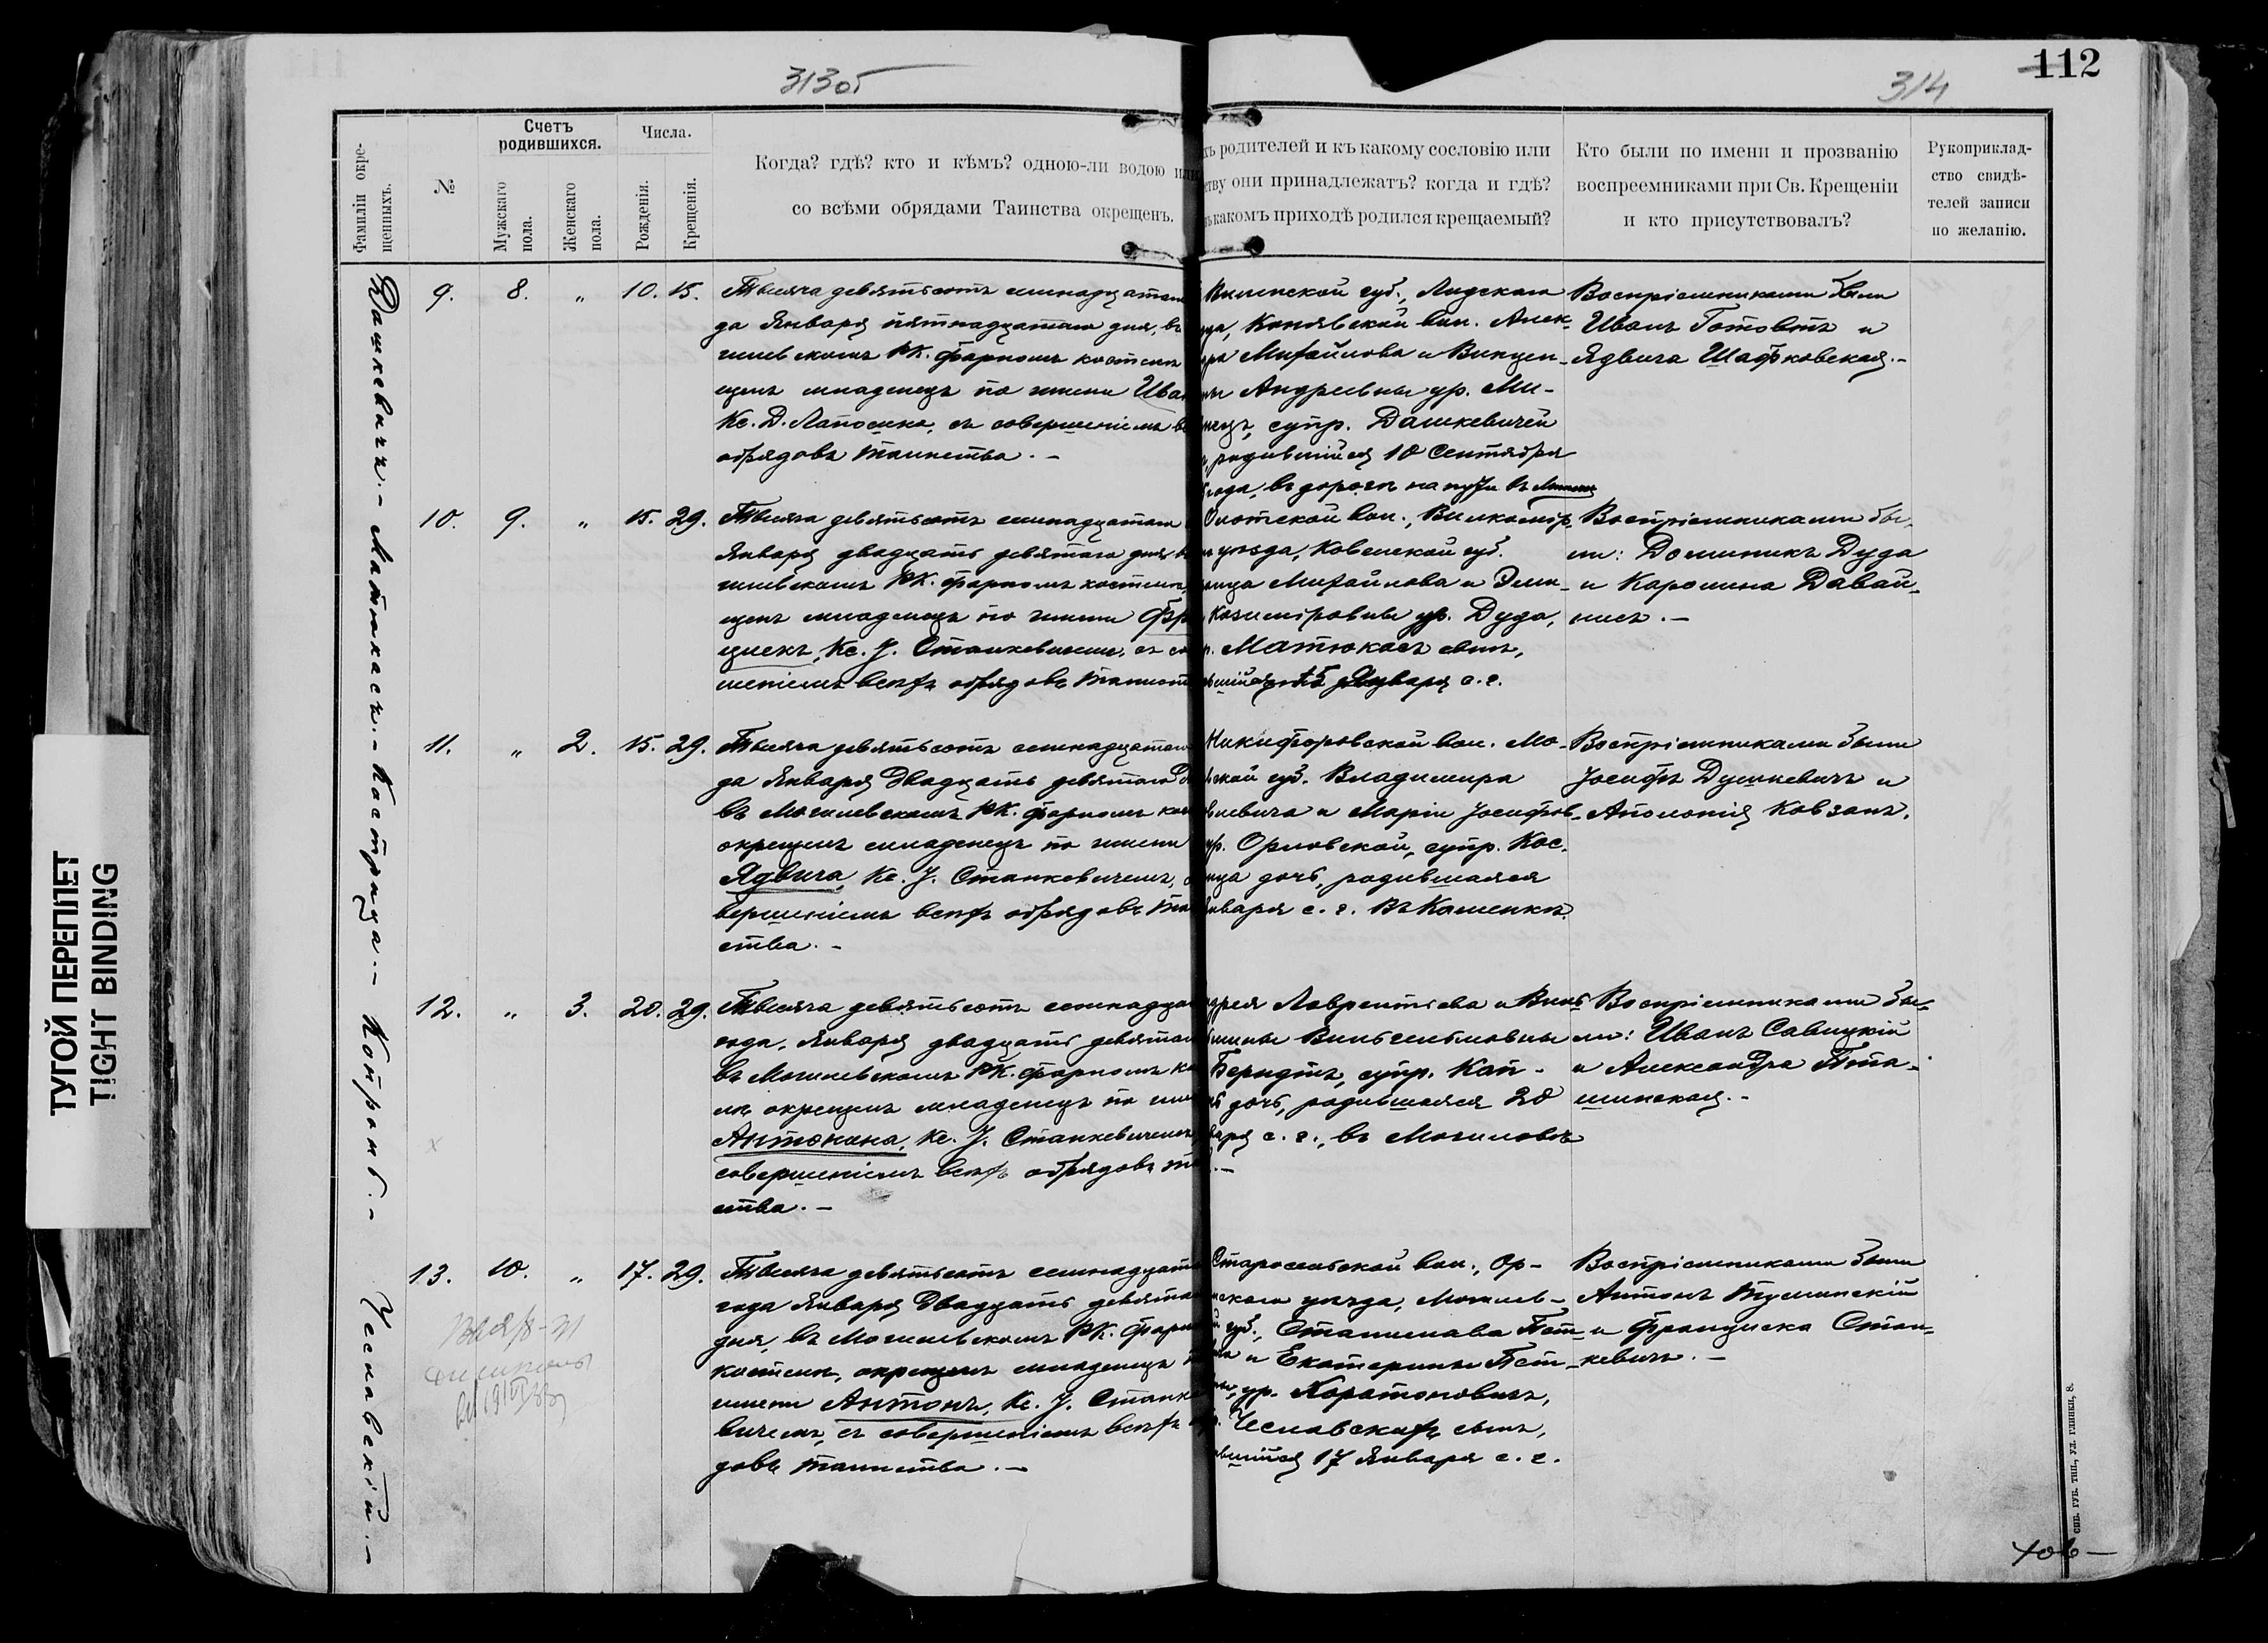 313об
314
112
Фамиліи окре-
щенныхъ.
№
Счетъ
родившихся.
Мужскаго
пола.
Женскаго
пола.
Числа.
Рожденія.
Крещенія.
Когда? гдѣ? кто и кѣмъ? одною-ли водою или
со всѣми обрядами Таинства окрещенъ.
хъ родителей и къ какому сословію или
ству они принадлежатъ? когда и гдѣ?
ъ какомъ приходѣ родился крещаемый?
Кто были по имени и прозванію
воспреемниками при Св. Крещеніи
и кто присутствовалъ?
Рукоприклад-
ство свидѣ-
телей записи
по желанію.
Дашкевичъ.- Матюкасъ.- Кострица.- Копроні.- Чеславскій.-
9. 8. „ 10. 15.
Тысяча девятьсотъ семнадцатаго
да Января пятнадцатаго дня, въ
гилевскомъ РК. фарномъ костелѣ
щенъ младенецъ по имени Иван
Кс. Д. Лапошко, съ совершеніемъ в
обрядовъ таинства.-
Виленской губ., Лидскаго
зда, Конявской вол. Алек-
дра Михайлова и Винцен-
ны Андреевны ур. Ми-
нецъ, супр. Дашкевичей
родившійся 10 Сентября
года, въ дорогѣ на пути въ
Воспріемниками были
Иванъ Готовтъ и
Ядвига Шафковская.-
10. 9. „ 15. 29.
Тысяча девятьсотъ семнадцатаго
Января двадцать девятаго дня в
гилевскомъ РК. фарномъ костелѣ,
щенъ младенецъ по имени Фр
цискъ, Кс. J. Станкевичемъ, съ со
шеніемъ всѣхъ обрядовъ таинст
Олотской вол., Вилкомір-
уѣзда, Ковенской губ.
Михайлова и Эми-
Казиміровны ур. Дуда,
р. Матюкасъ сынъ,
вшійся 15 Января с.г.
Воспріемниками бы-
ли: Доминикъ Дуда
и Каролина Давай-
нисъ.-
11. „ 2. 15. 29.
Тысяча девятьсотъ семнадцатаго
да Января Двадцать девятаго д
въ Могилевскомъ РК. фарномъ кос
окрещенъ младенецъ по имени
Ядвига, Кс. J. Станкевичемъ, с
вершеніемъ всѣхъ обрядовъ таи
ства.-
Никифоровской вол. Мо-
вской губ. Владимира
евича и Маріи Jосифов-
ур. Орловской, супр. Кос-
ица дочь, родившаяся
нваря с. г. въ Каменкѣ.
Воспріемниками были
Jосифъ Душкевичъ и
Аполонія Ковзанъ.
12. „ 3. 20. 29.
Тысяча девятьсотъ семнадца
года, Января двадцать девятаг
въ Могилевскомъ РК. фарномъ ко
лѣ окрещенъ младенецъ по им
Антонина, Кс. J. Станкевичемъ,
совершеніемъ всѣхъ обрядовъ та
ства.-
дрея Лаврентіева и Виль-
мины Вильгельмовны
Берндтъ, супр. Коп-
дочь, родившаяся 20
варя с. г., въ Могилевѣ
.-
Воспріемниками бы-
ли: Иванъ Савицкій
и Александра Пта-
шинская.-
13. 10. „ 17. 29.
Тысяча девятьсотъ семнадцата
года Января Двадцать девята
дня, въ Могилевскомъ РК. фарн
костелѣ, окрещенъ младенецъ п
имени Антонъ, Кс. J. Станке
вичемъ, съ совершеніемъ всѣхъ об
довъ таинства.-
Старосельской вол., Ор-
скаго уѣзда, Могилев-
й губ., Станислава Пет-
и Екатерины Пет-
ны, ур. Харитоновичъ,
Чеславскихъ сынъ,
вшійся 17 Января с. г.
Воспріемниками были
Антонъ Тушинскій
и Франциска Стан-
кевичъ.-
СПБ. ГУБ. ТИП., УЛ. ГЛИНКИ, 8.
ТУГОЙ ПЕРЕПЛЕТ
TIGHT BINDING